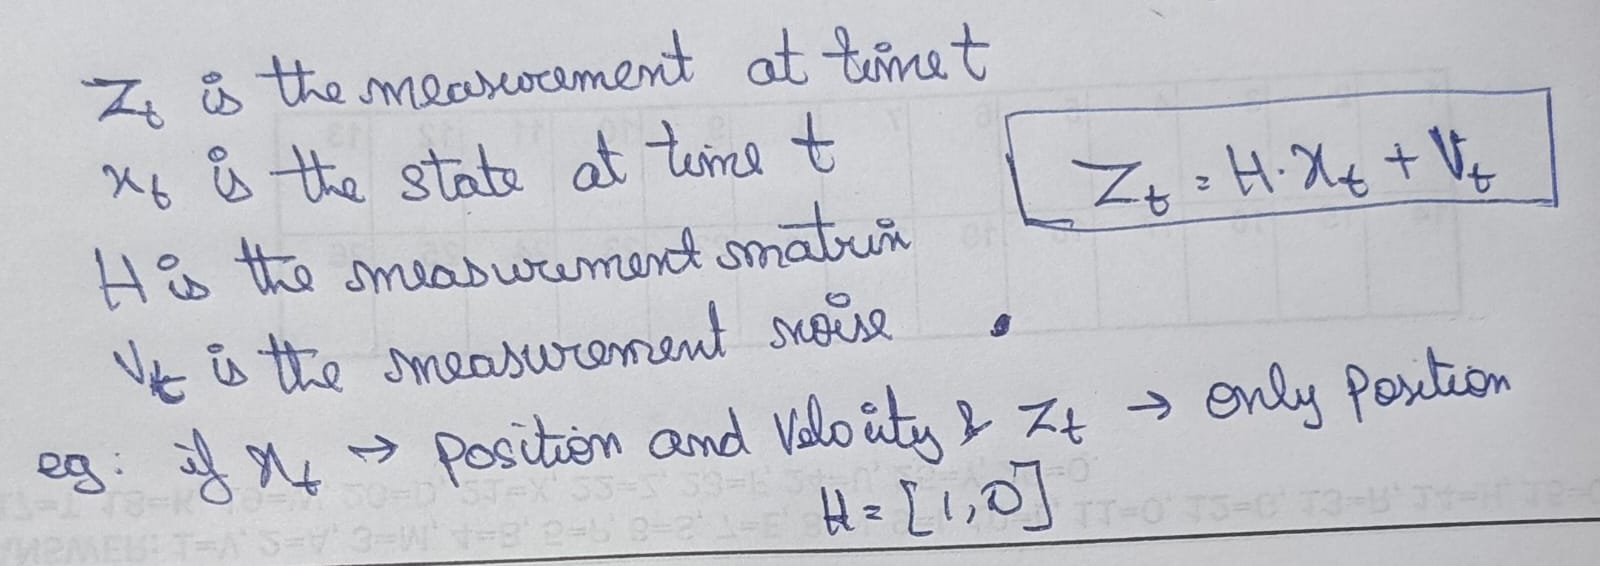 Zt is the measurement at time t
xt is the state at time t
Zt = H·xt + Vt
H is the measurement matrix
Vt is the measurement noise
eg: if xt → position and velocity & Zt → only position
H = [1,0]